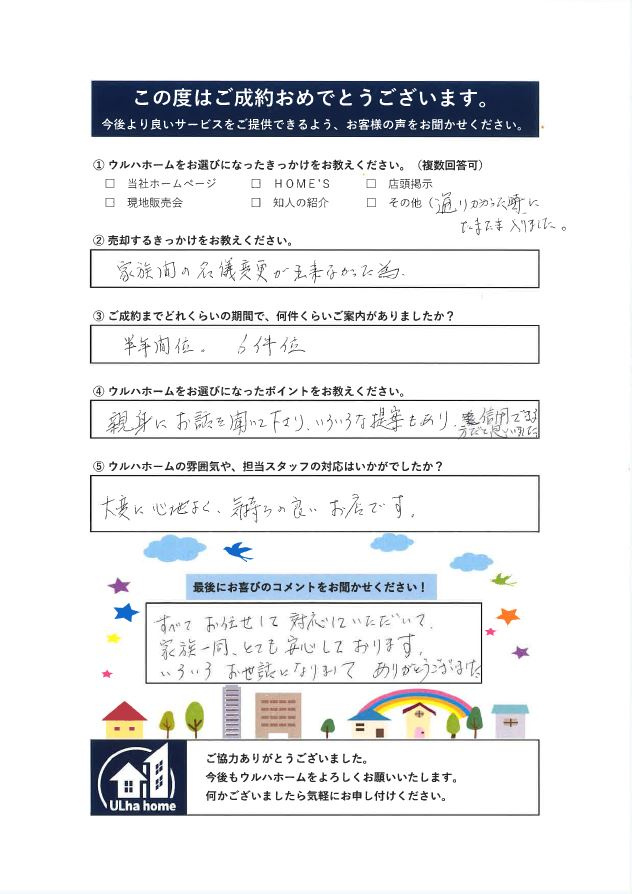 この度はご成約おめでとうございます。
今後より良いサービスをご提供できるよう、お客様の声をお聞かせください。
① ウルハホームをお選びになったきっかけをお教えください。（複数回答可）
□ 当社ホームページ □ HOME'S □ 店頭掲示
□ 現地販売会 □ 知人の紹介 □ その他（通りかかった時に
たまたま入りました。
② 売却するきっかけをお教えください。
家族間の名儀変更が出来なかった為.
③ ご成約までどれくらいの期間で、何件くらいご案内がありましたか？
半年間位。 6件位
④ ウルハホームをお選びになったポイントをお教えください。
親身にお話を聞いて下さり、いろいろな提案もあり、信用できる
方だと思いました
⑤ ウルハホームの雰囲気や、担当スタッフの対応はいかがでしたか？
大変に心地よく、気持ちの良いお店です。
最後にお喜びのコメントをお聞かせください！
すべてお任せして対応していただいて、
家族一同、とても安心しております。
いろいろお世話になりまして ありがとうございました
ULha home
ご協力ありがとうございました。
今後もウルハホームをよろしくお願いいたします。
何かございましたら気軽にお申し付けください。